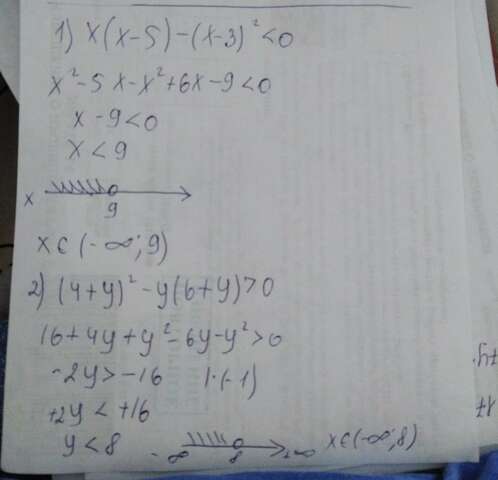 1) x(x-5)-(x-3)²<0
x²-5x-x²+6x-9<0
x-9<0
x<9
x 9
x∈(-∞;9)
2) (4+y)²-y(6+y)>0
16+4y+y²-6y-y²>0
-2y>-16 |·(-1)
+2y<+16
y<8 -∞ 8 +∞ x∈(-∞;8)